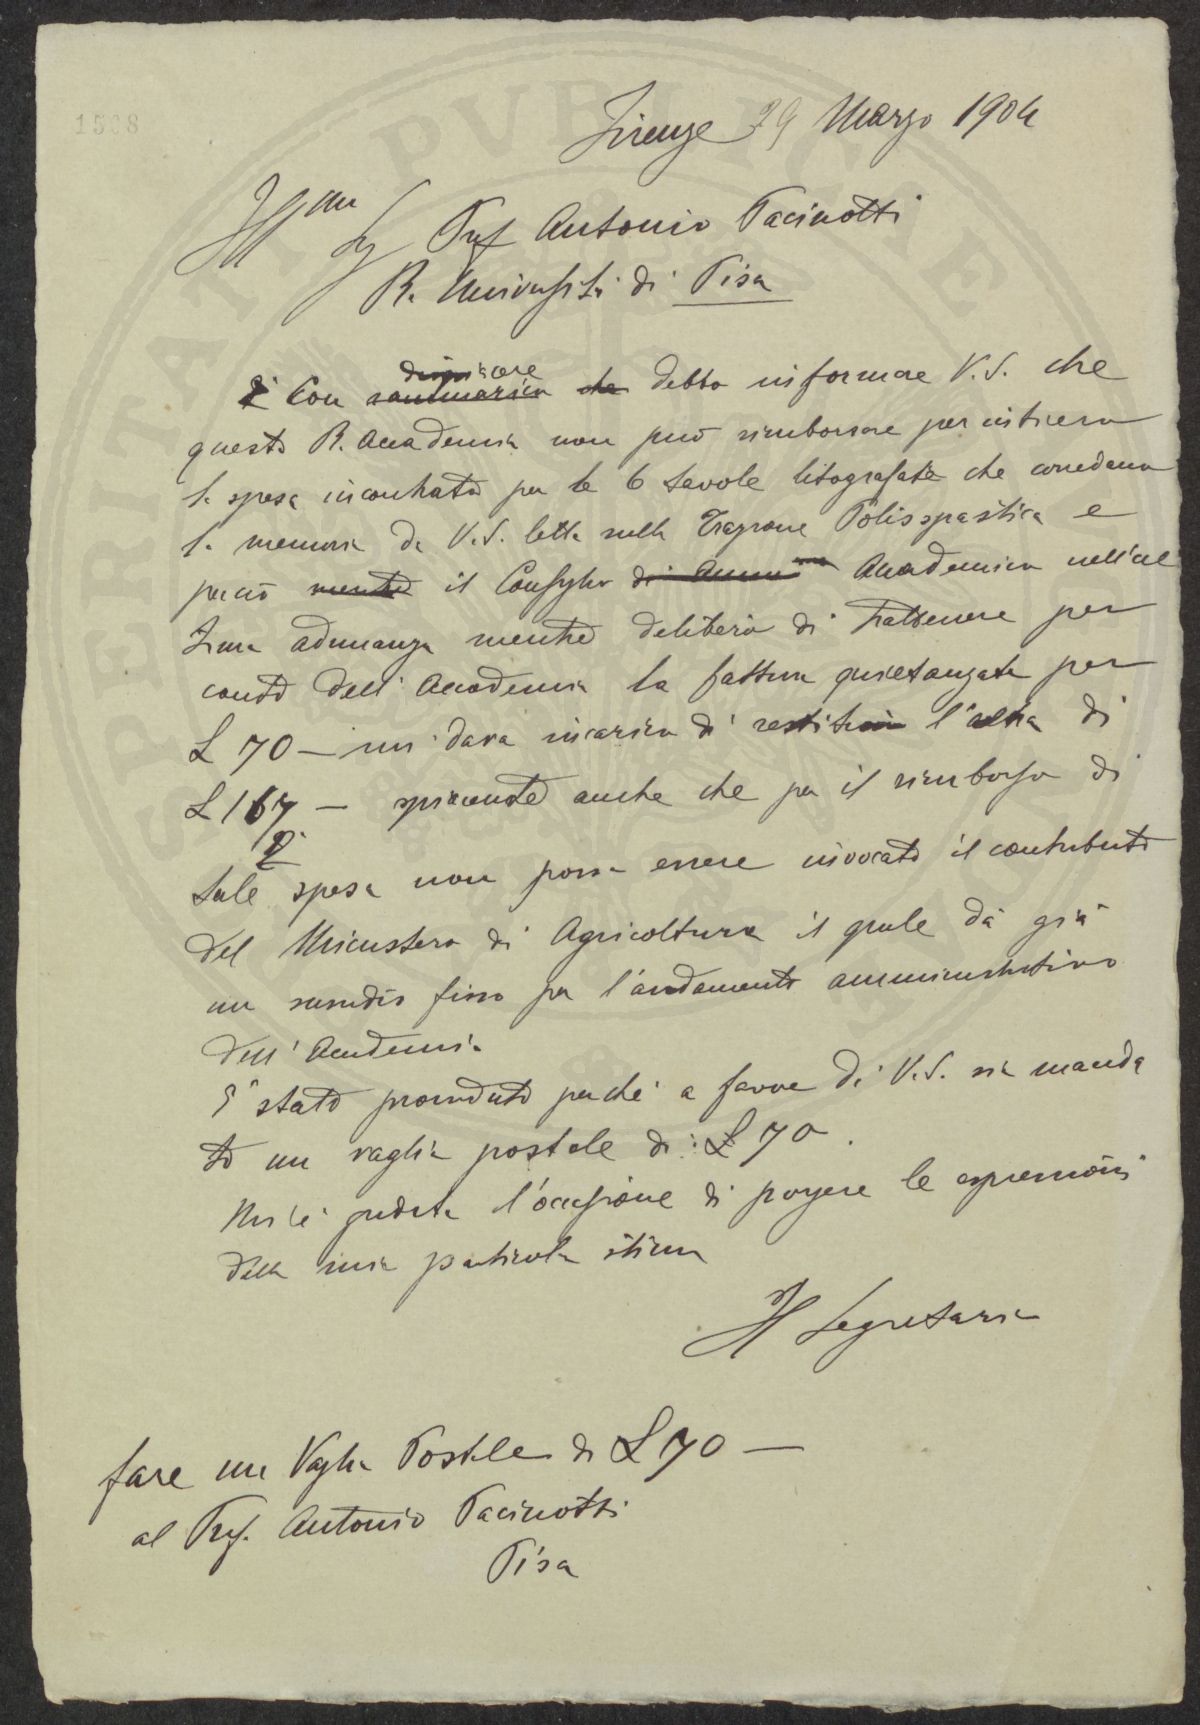 1568
Firenze 29 Marzo 1904
Ill mo Sig Prof Antonio Pacinotti
R. Università di Pisa
dispiacere
È Con rammarico che debbo informare V.S. che
questa R. Accademia non può rimborsare per intiero
la spesa incontrata per le 6 tavole litografate che corredano
la memoria da V.S. letta sulla Trazione Polispastica e
perciò mentre il Consiglio Accademico nell'ul
tima adunanza mentre deliberò di trattenere per
conto dell'Accademia la fattura quietanzata per
L 70 — mi dava incarico di restituir l'altra di
L 167 — spiacente anche che per il rimborso di
tale spesa non possa essere invocato il contributo
del Ministero di Agricoltura il quale dà già
un sussidio fisso per l'andamento amministrativo
dell'Accademia
È stato provveduto perché a favore di V.S. sia manda
to un vaglia postale di L 70.
Mi è gradita l'occasione di porgere le espressioni
della mia particolar stima
Il Segretario
fare un Vaglia Postale di L 70 —
al Prof. Antonio Pacinotti
Pisa